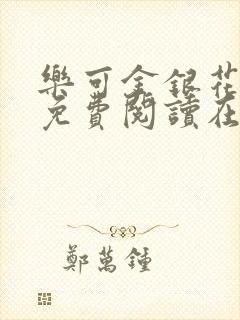 樂可金銀花
免費閱讀在
鄭萬鍾